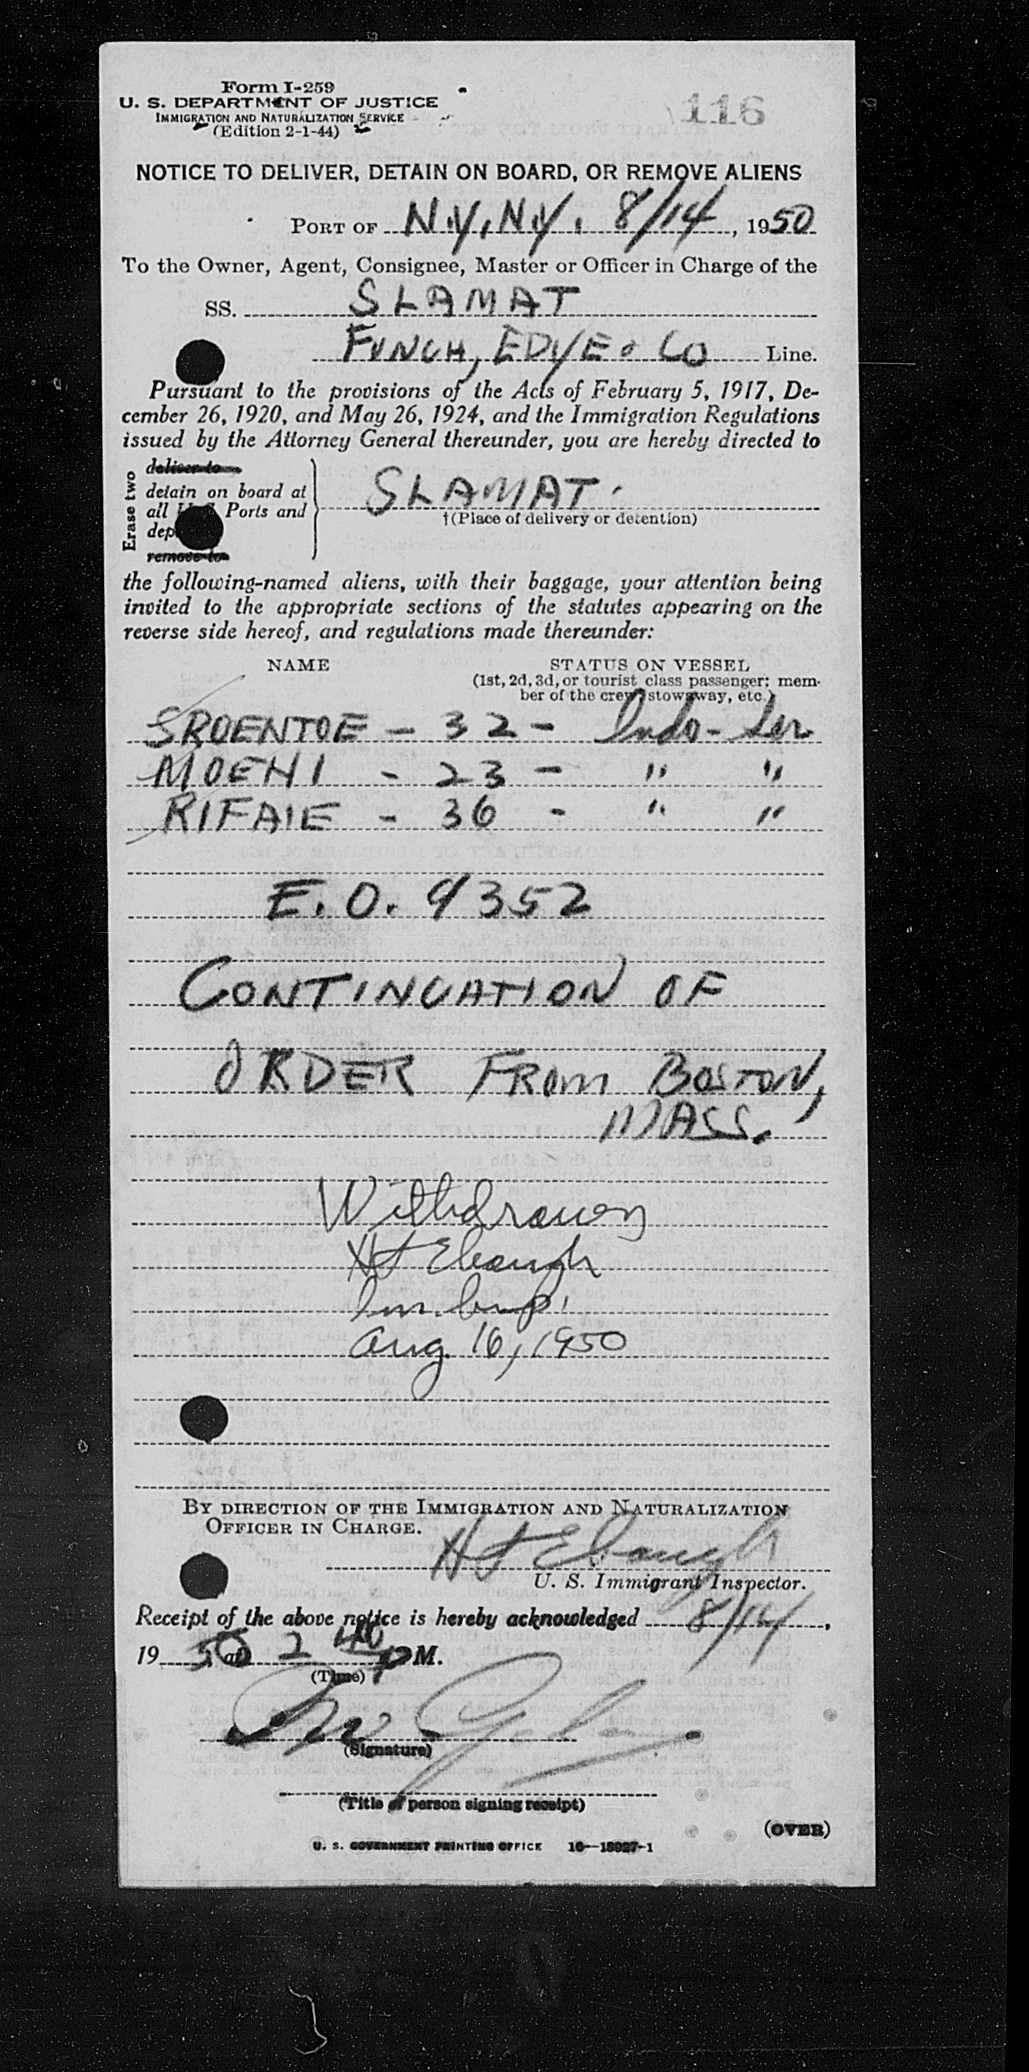 Form I-259
U. S. DEPARTMENT OF JUSTICE
IMMIGRATION AND NATURALIZATION SERVICE
(Edition 2-1-44)
116
NOTICE TO DELIVER, DETAIN ON BOARD, OR REMOVE ALIENS
PORT OF N.Y., N.Y. 8/14, 1950
To the Owner, Agent, Consignee, Master or Officer in Charge of the
SS. SLAMAT
FUNCH, EDYE & CO Line.
Pursuant to the provisions of the Acts of February 5, 1917, De-
cember 26, 1920, and May 26, 1924, and the Immigration Regulations
issued by the Attorney General thereunder, you are hereby directed to
Erase two
deliver to
detain on board at
all Ports and
remove to
SLAMAT.
†(Place of delivery or detention)
the following-named aliens, with their baggage, your attention being
invited to the appropriate sections of the statutes appearing on the
reverse side hereof, and regulations made thereunder:
NAME
STATUS ON VESSEL
(1st, 2d, 3d, or tourist class passenger; mem-
ber of the crew, stowaway, etc.)
SROENTOE - 32 - Indo-
MOEHI - 23 - " "
RIFAIE - 36 - " "
E.O. 9352
CONTINUATION OF
ORDER FROM BOSTON,
MASS.
Withdrawn
HJ Ebaugh
Im. Insp.
Aug. 16, 1950
BY DIRECTION OF THE IMMIGRATION AND NATURALIZATION
OFFICER IN CHARGE.
HJ Ebaugh
U. S. Immigrant Inspector.
Receipt of the above notice is hereby acknowledged 8/14,
1950 at 2 40 PM.
(Time)
(Signature)
(Title of person signing receipt)
(OVER)
U. S. GOVERNMENT PRINTING OFFICE 16—18927-1